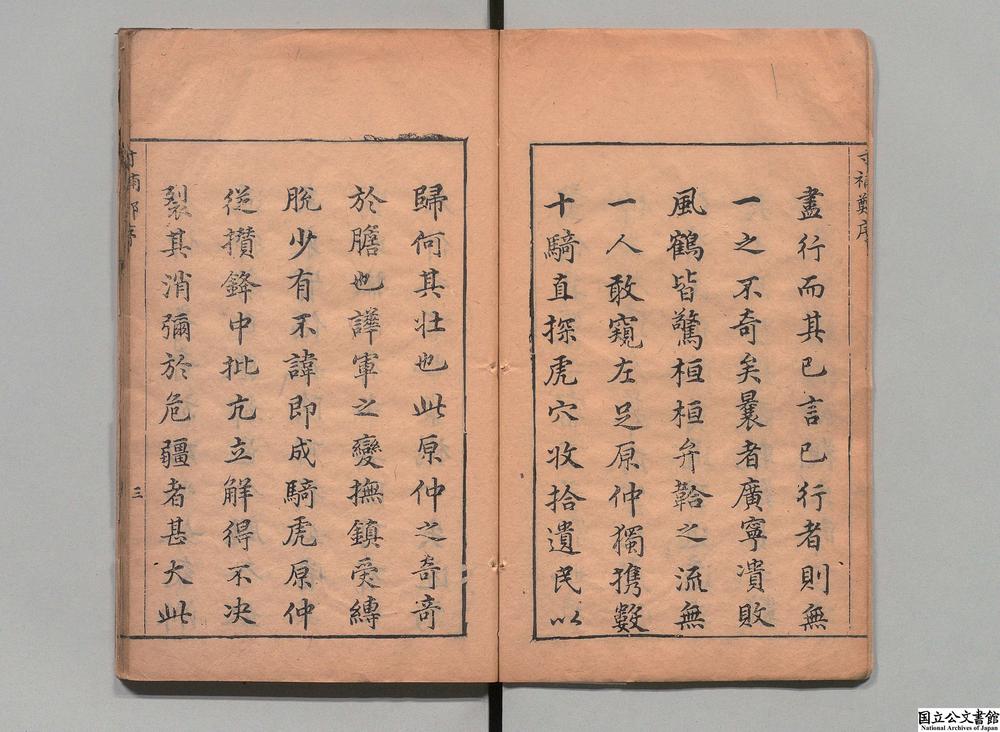 盡行而其已言已行者則無
一之不奇矣曩者廣寧潰敗
風鶴皆驚桓桓弁鞈之流無
一人敢窺左足原仲獨携數
十騎直探虎穴收拾遺民以
歸何其壯也此原仲之奇奇
於膽也譁軍之變撫鎮受縛
脫少有不諱即成騎虎原仲
從攢鋒中批亢立解得不决
裂其消彌於危疆者甚大此
三
国立公文書館
National Archives of Japan